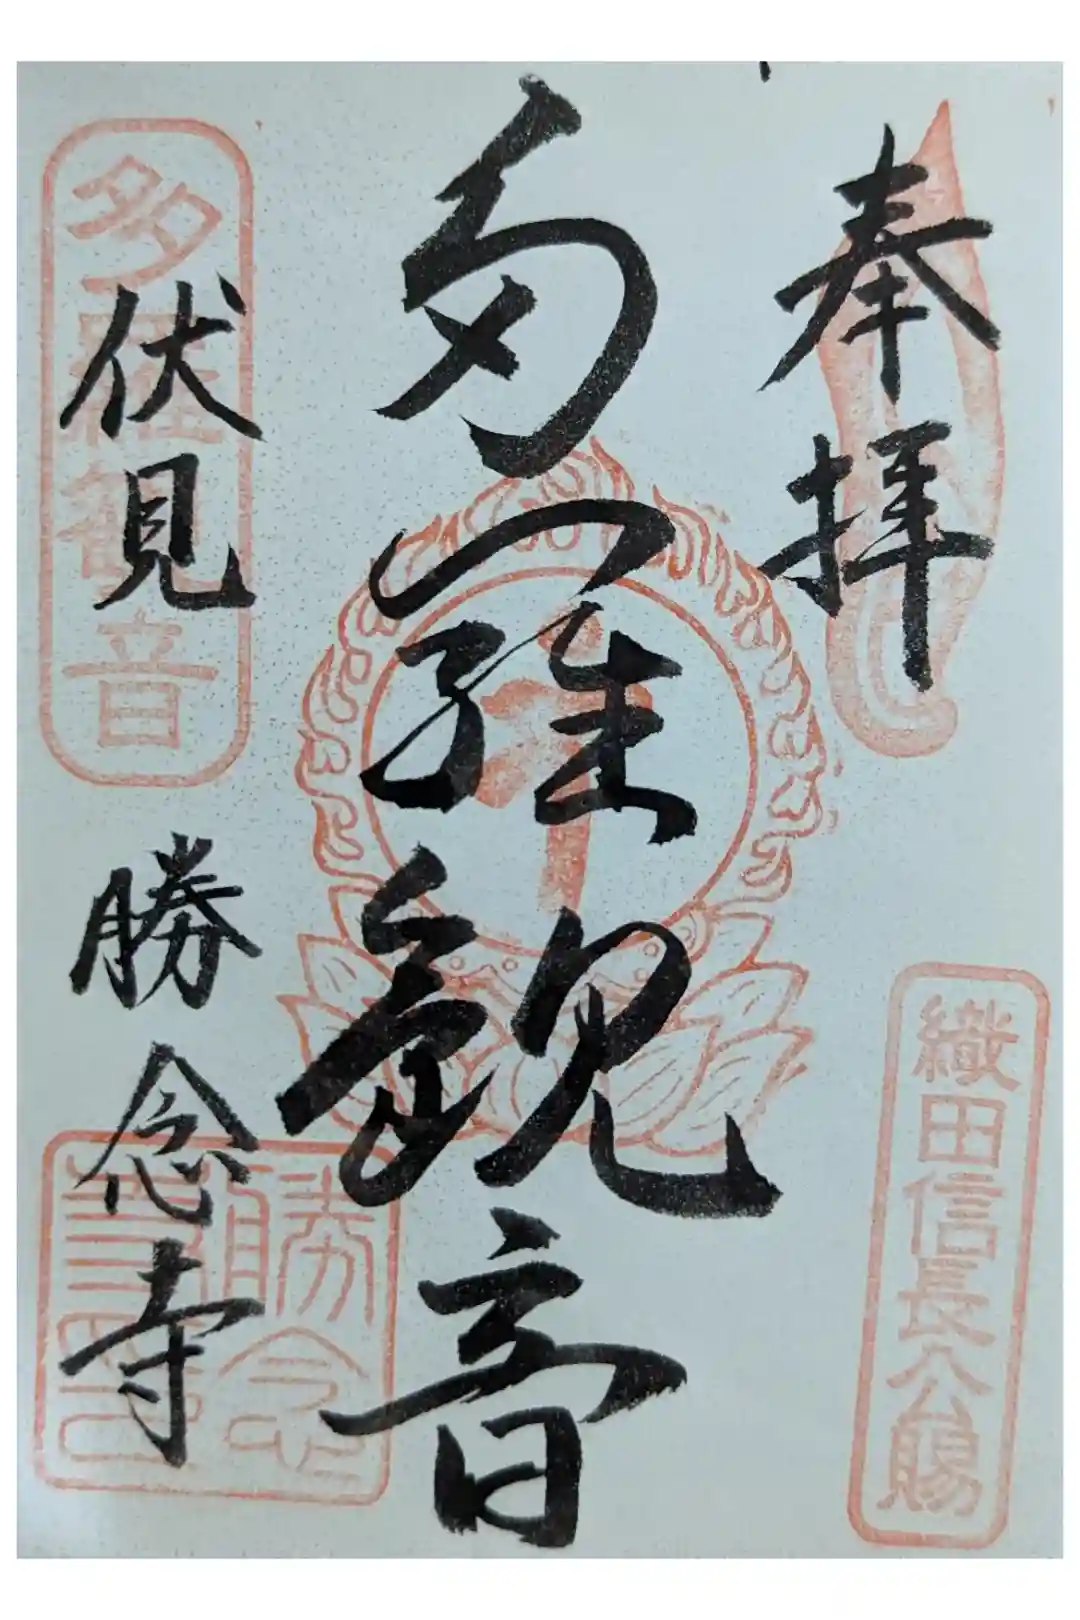 奉拝
織田信長公賜
多羅観音
多羅観音
伏見
勝念寺
勝念